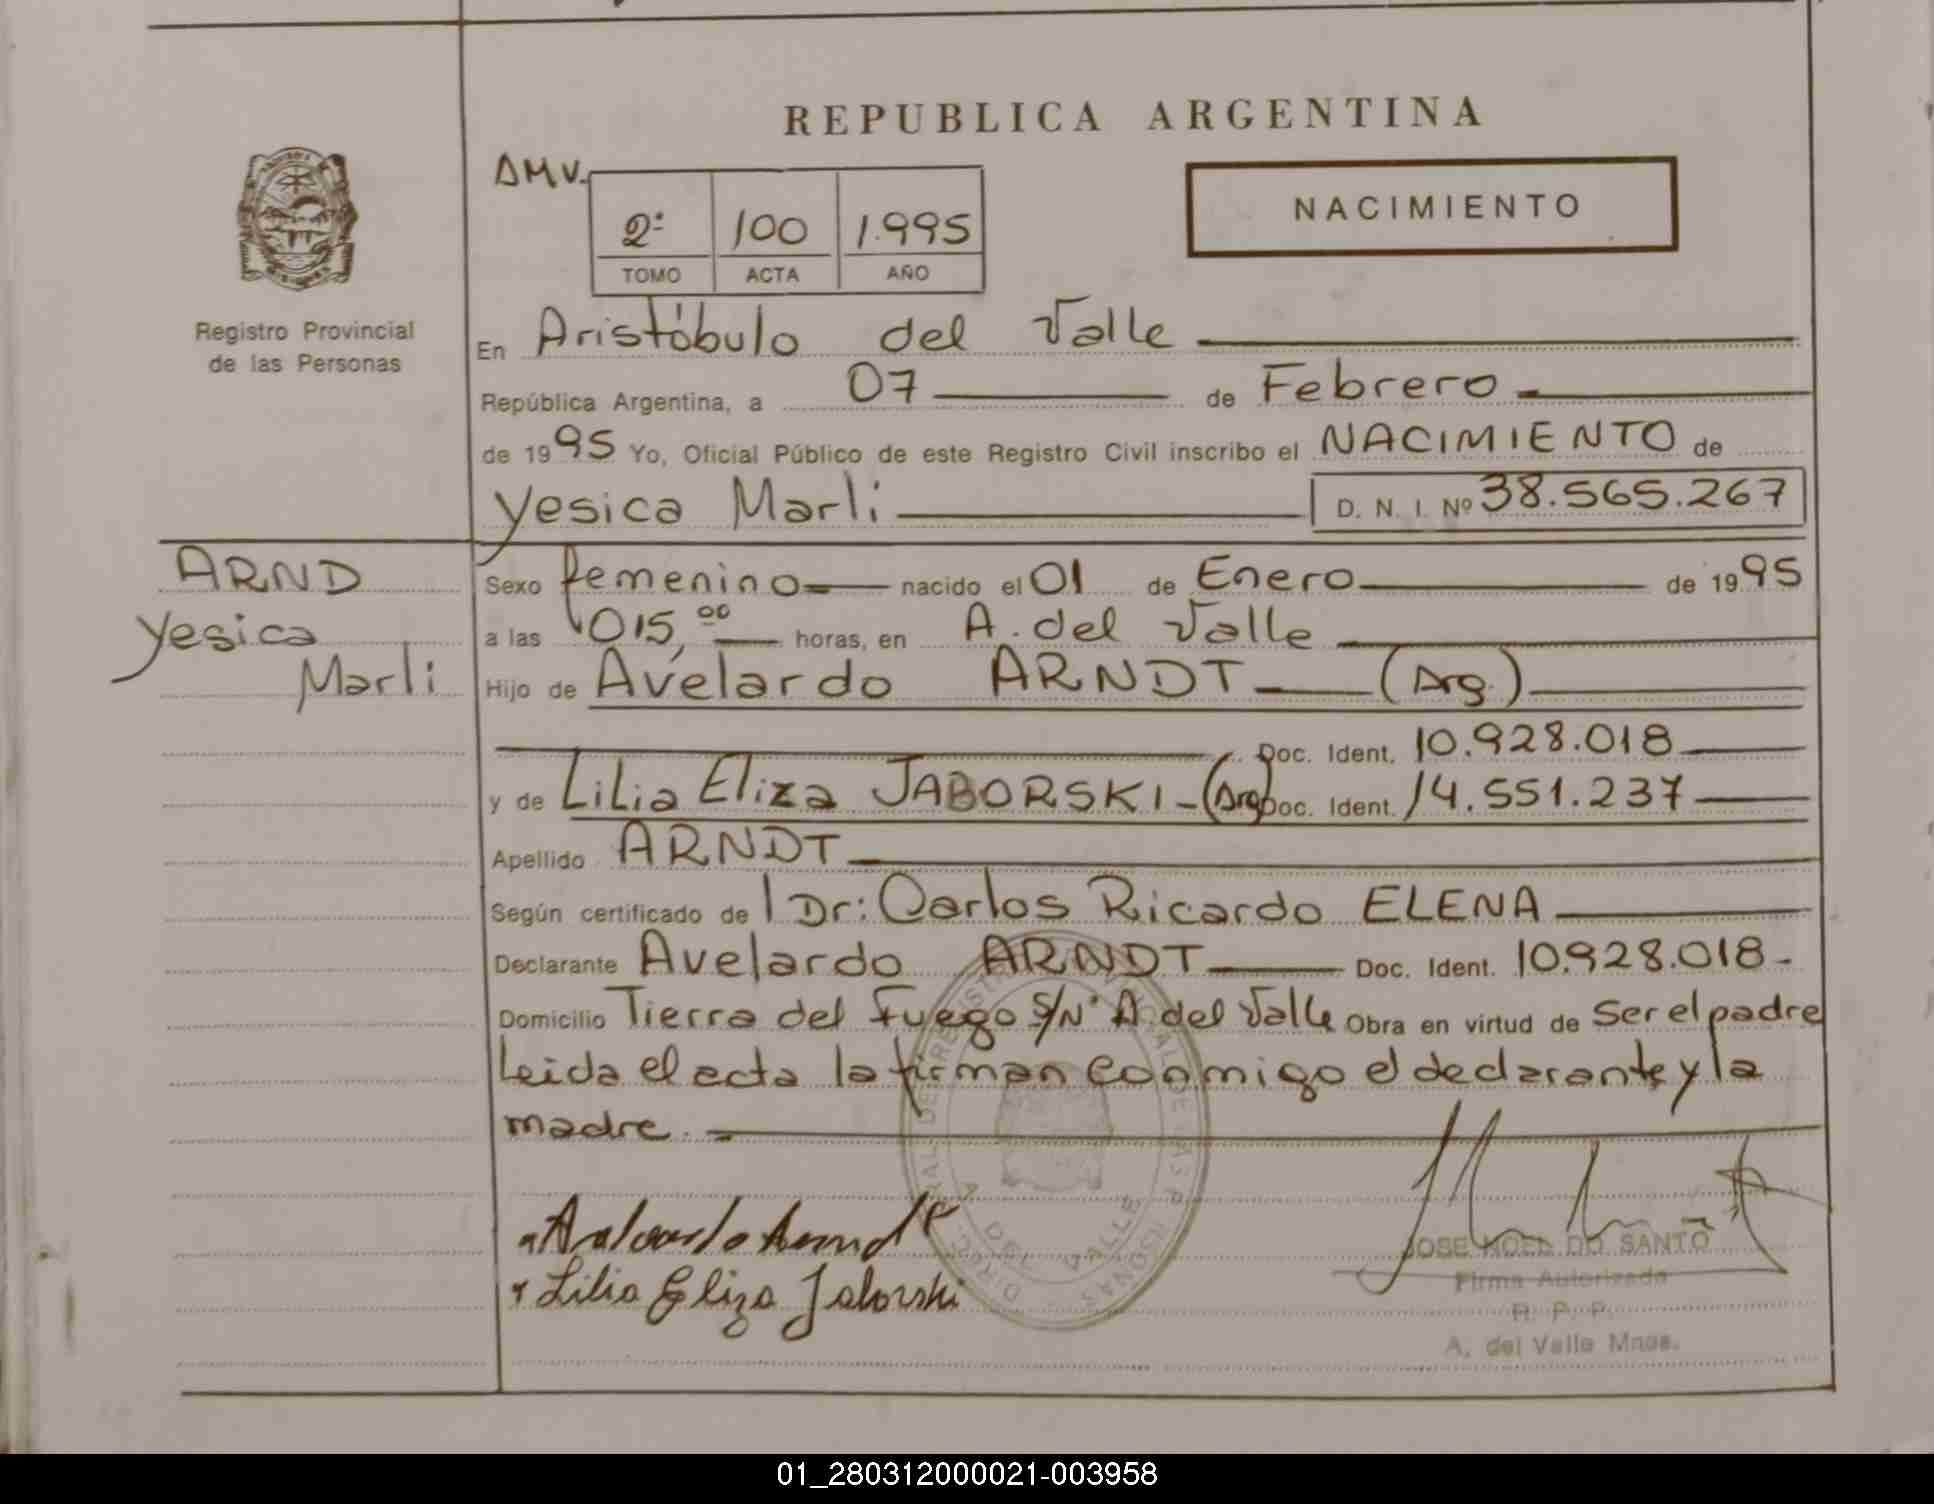 REPUBLICA ARGENTINA
DMV.
2º 100 1.995
TOMO ACTA AÑO
NACIMIENTO
Registro Provincial
de las Personas
En Aristóbulo del Valle
República Argentina, a 07 de Febrero
de 1995 Yo, Oficial Público de este Registro Civil inscribo el NACIMIENTO de
Yesica Marli D. N. I. Nº 38.565.267
ARND
Yesica
Marli
Sexo femenino nacido el 01 de Enero de 1995
a las 015,00 horas, en A. del Valle
Hijo de Avelardo ARNDT (Arg.)
Doc. Ident. 10.928.018
y de Lilia Eliza JABORSKI - (Arg) Doc. Ident. 14.551.237
Apellido ARNDT
Según certificado de Dr: Carlos Ricardo ELENA
Declarante Avelardo ARNDT Doc. Ident. 10.928.018-
Domicilio Tierra del Fuego S/Nº A. del Valle Obra en virtud de Ser el padre
Leida el acta la firman conmigo el declarante y la
madre.
Lilia Eliza Jaborski
JOSE NOEL DO SANTO
Firma Autorizada
R. P. P.
A. del Valle Mnes.
01_280312000021-003958